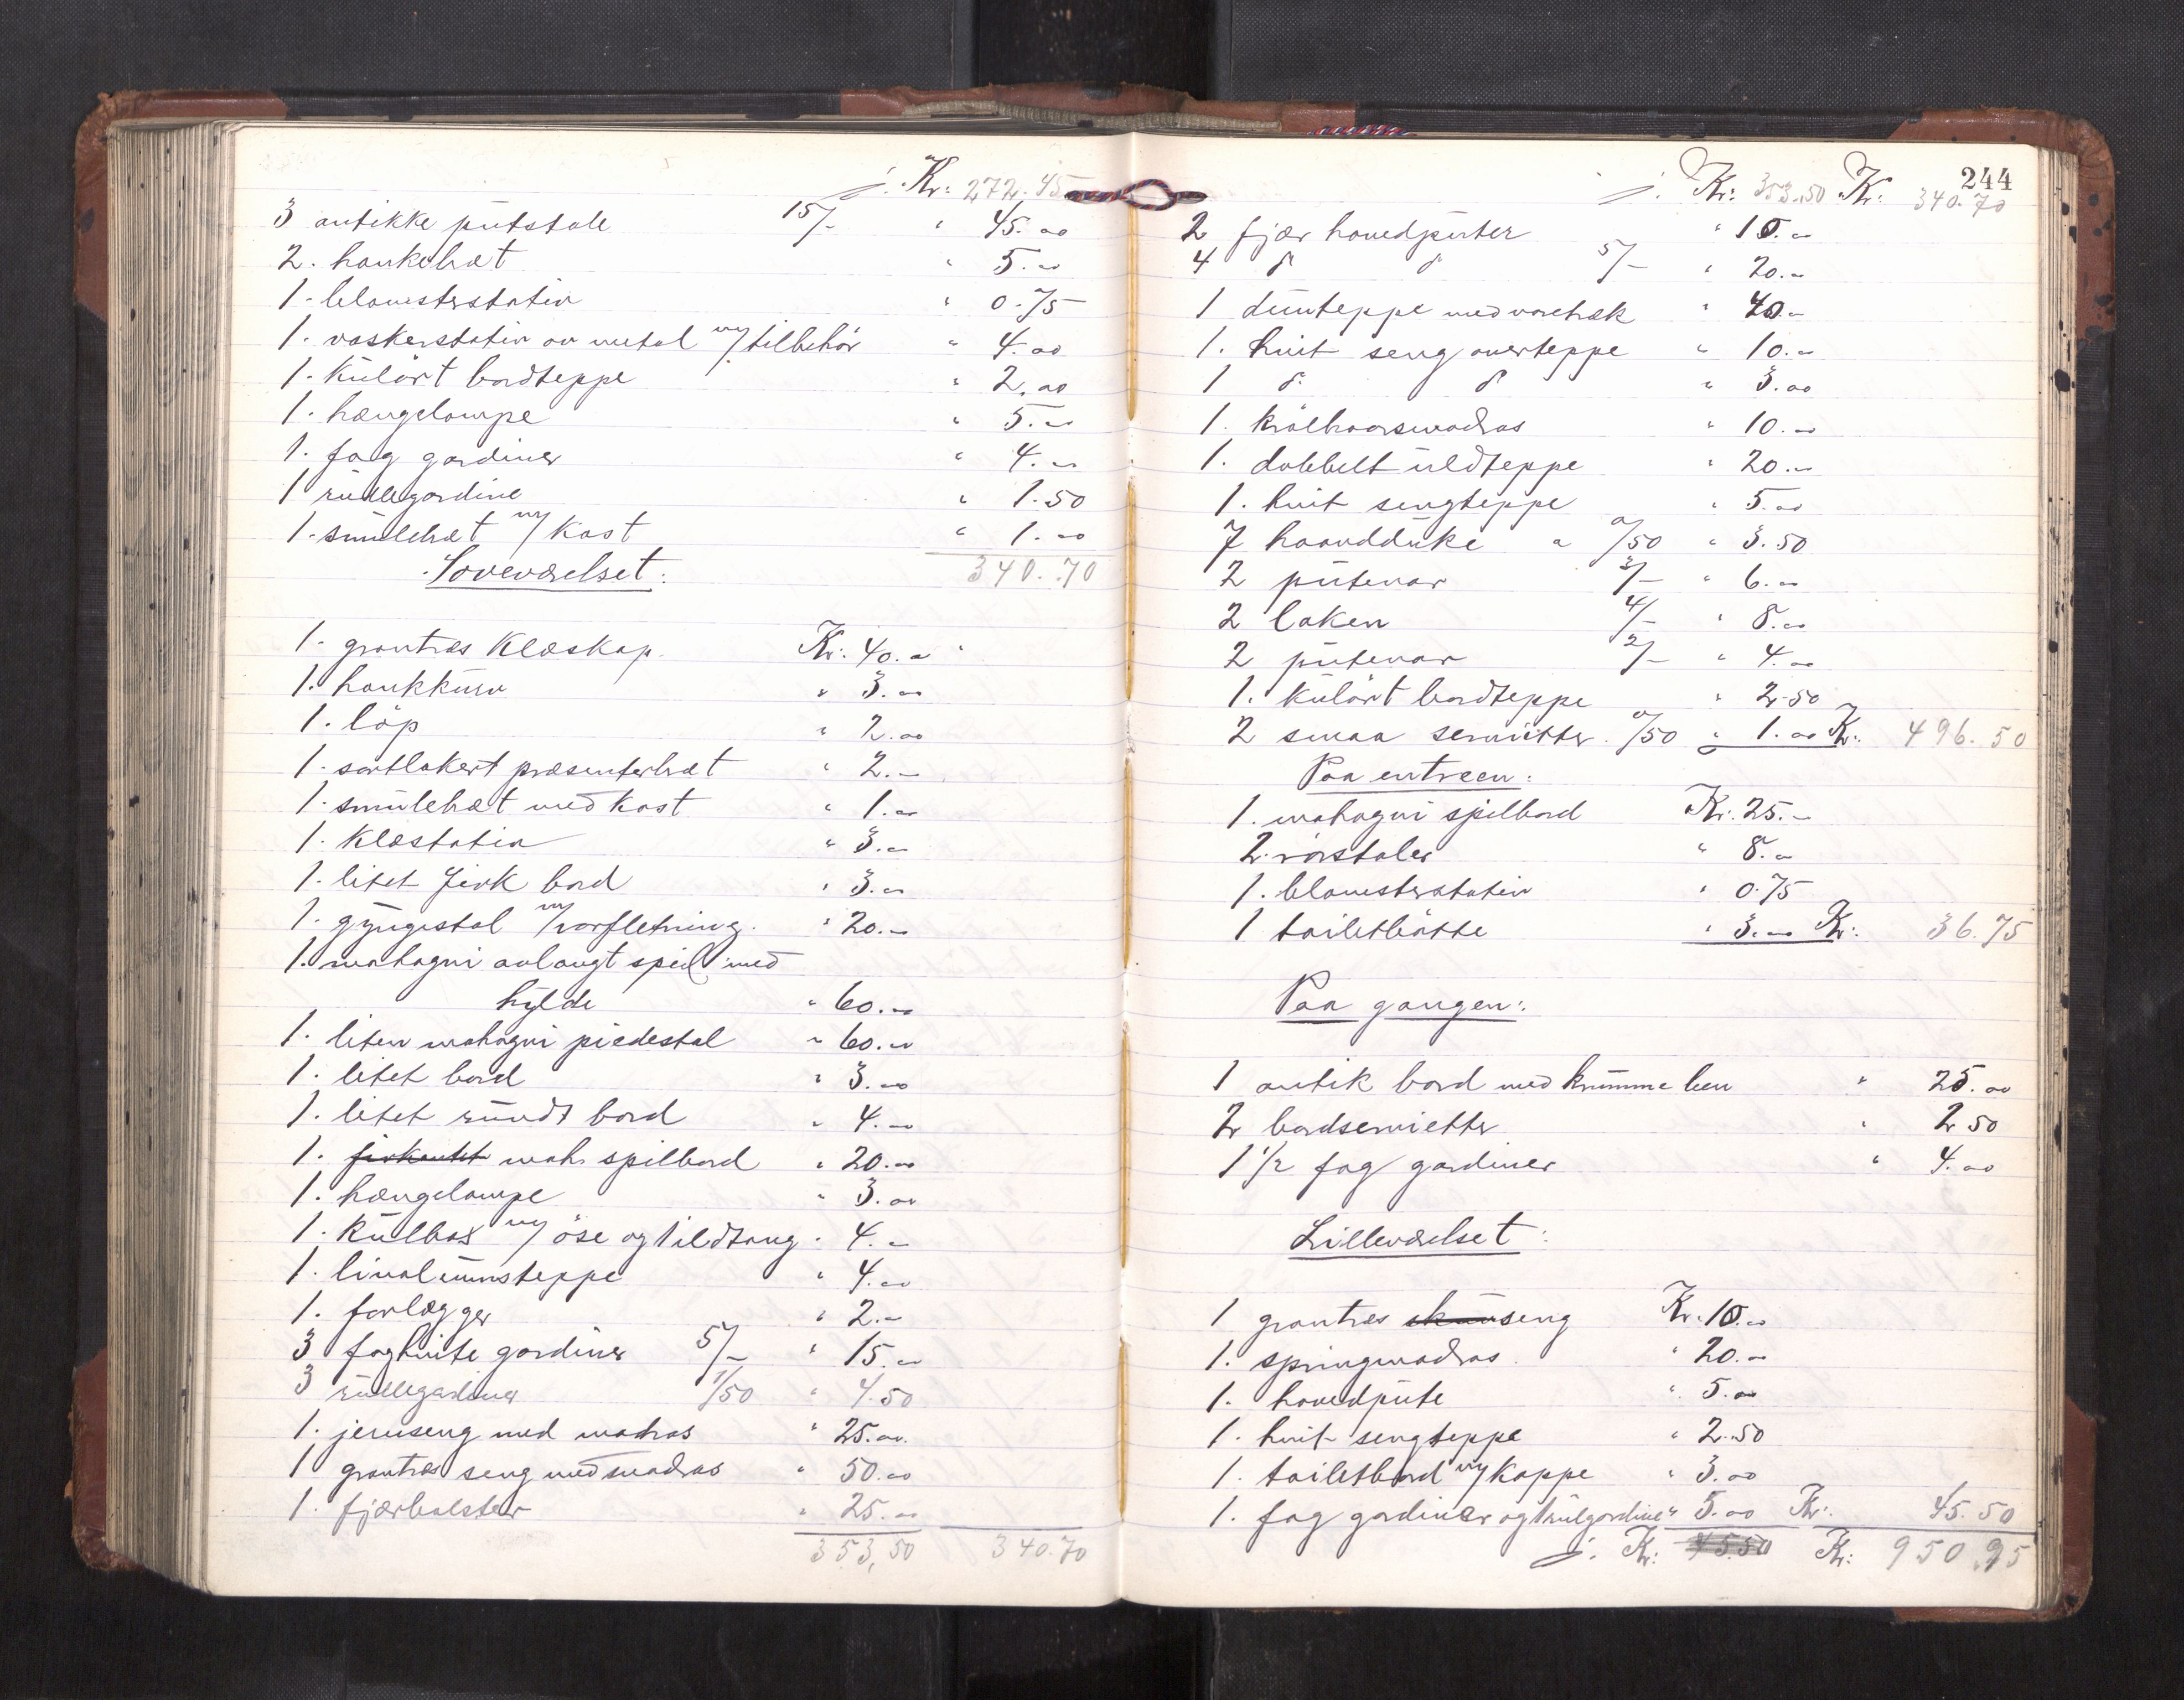 ./. Kr: 272.45
3 antikke putstole 15/- " 45.00
2. hankebræt " 5.00
1. blomsterstativ " 0.75
1. vaskerstativ av metal m/ tilbehör " 4.00
1. kulört bordteppe " 2.00
1. hængelampe " 5.00
1. fag gardiner " 4.00
1 rullegardine " 1.50
1. smulebræt m/ kost " 1.00
Soveværelset: 340.70
1. grantræs klæskap Kr. 40.00
1. hankkurv " 3.00
1. löp " 2.00
1. sortlakert præsenterbræt " 2.00
1. smulebræt med kost " 1.00
1. klæstativ " 3.00
1. litet firk bord " 3.00
1. gyngestol m/ rörfletning. " 20.00
1. mahogni avlangt speil med
hylde " 60.00
1. liten mahogni piedestal " 60.00
1. litet bord " 3.00
1. litet rundt bord " 4.00
1. firkantet mah. spilbord " 20.00
1. hængelampe " 3.00
1. kulbox m/ öse og ildtang " 4.00
1. linoleumsteppe " 4.00
1. forlægger " 2.00
3 fag hvite gardiner 5/- " 15.00
3 rullegardiner 1/50 " 4.50
1. jernseng med madras " 25.00
1 grantræs seng med madras " 50.00
1. fjærbolster " 25.00
353,50 340.70
244
./. Kr: 353.50 Kr: 340.70
2 fjær hovedputer " 10.00
4 d° d° 5/- " 20.00
1 dunteppe med vortræk " 40.00
1. hvit seng overteppe " 10.00
1 d° d° " 3.00
1. krölhaarsmadras " 10.00
1. dobbelt uldteppe " 20.00
1. hvit sengteppe " 5.00
7 haandduke a 0/50 " 3.50
2 putevar 3/- " 6.00
2 laken 4/- " 8.00
2 putevar 2/- " 4.00
1. kulört bordteppe " 2.50
2 smaa servietter. 0/50 " 1.00 Kr: 496.50
Paa entreen:
1. mahogni spilbord Kr. 25.00
2. rörstoler " 8.00
1. blomsterstativ " 0.75
1 toiletbötte " 3.00 Kr: 36.75
Paa gangen:
1 antik bord med krumme ben " 25.00
2 bordservietter " 2.50
1 1/2 fag gardiner " 4.00
Lilleværelset:
1 grantræs seng Kr. 10.00
1. springmadras " 20.00
1. hovedpute " 5.00
1. hvit sengteppe " 2.50
1. toiletbord m/ kappe " 3.00
1. fag gardiner og rulgardine " 5.00 Kr: 45.50
./. Kr: 45.50 Kr: 950.95